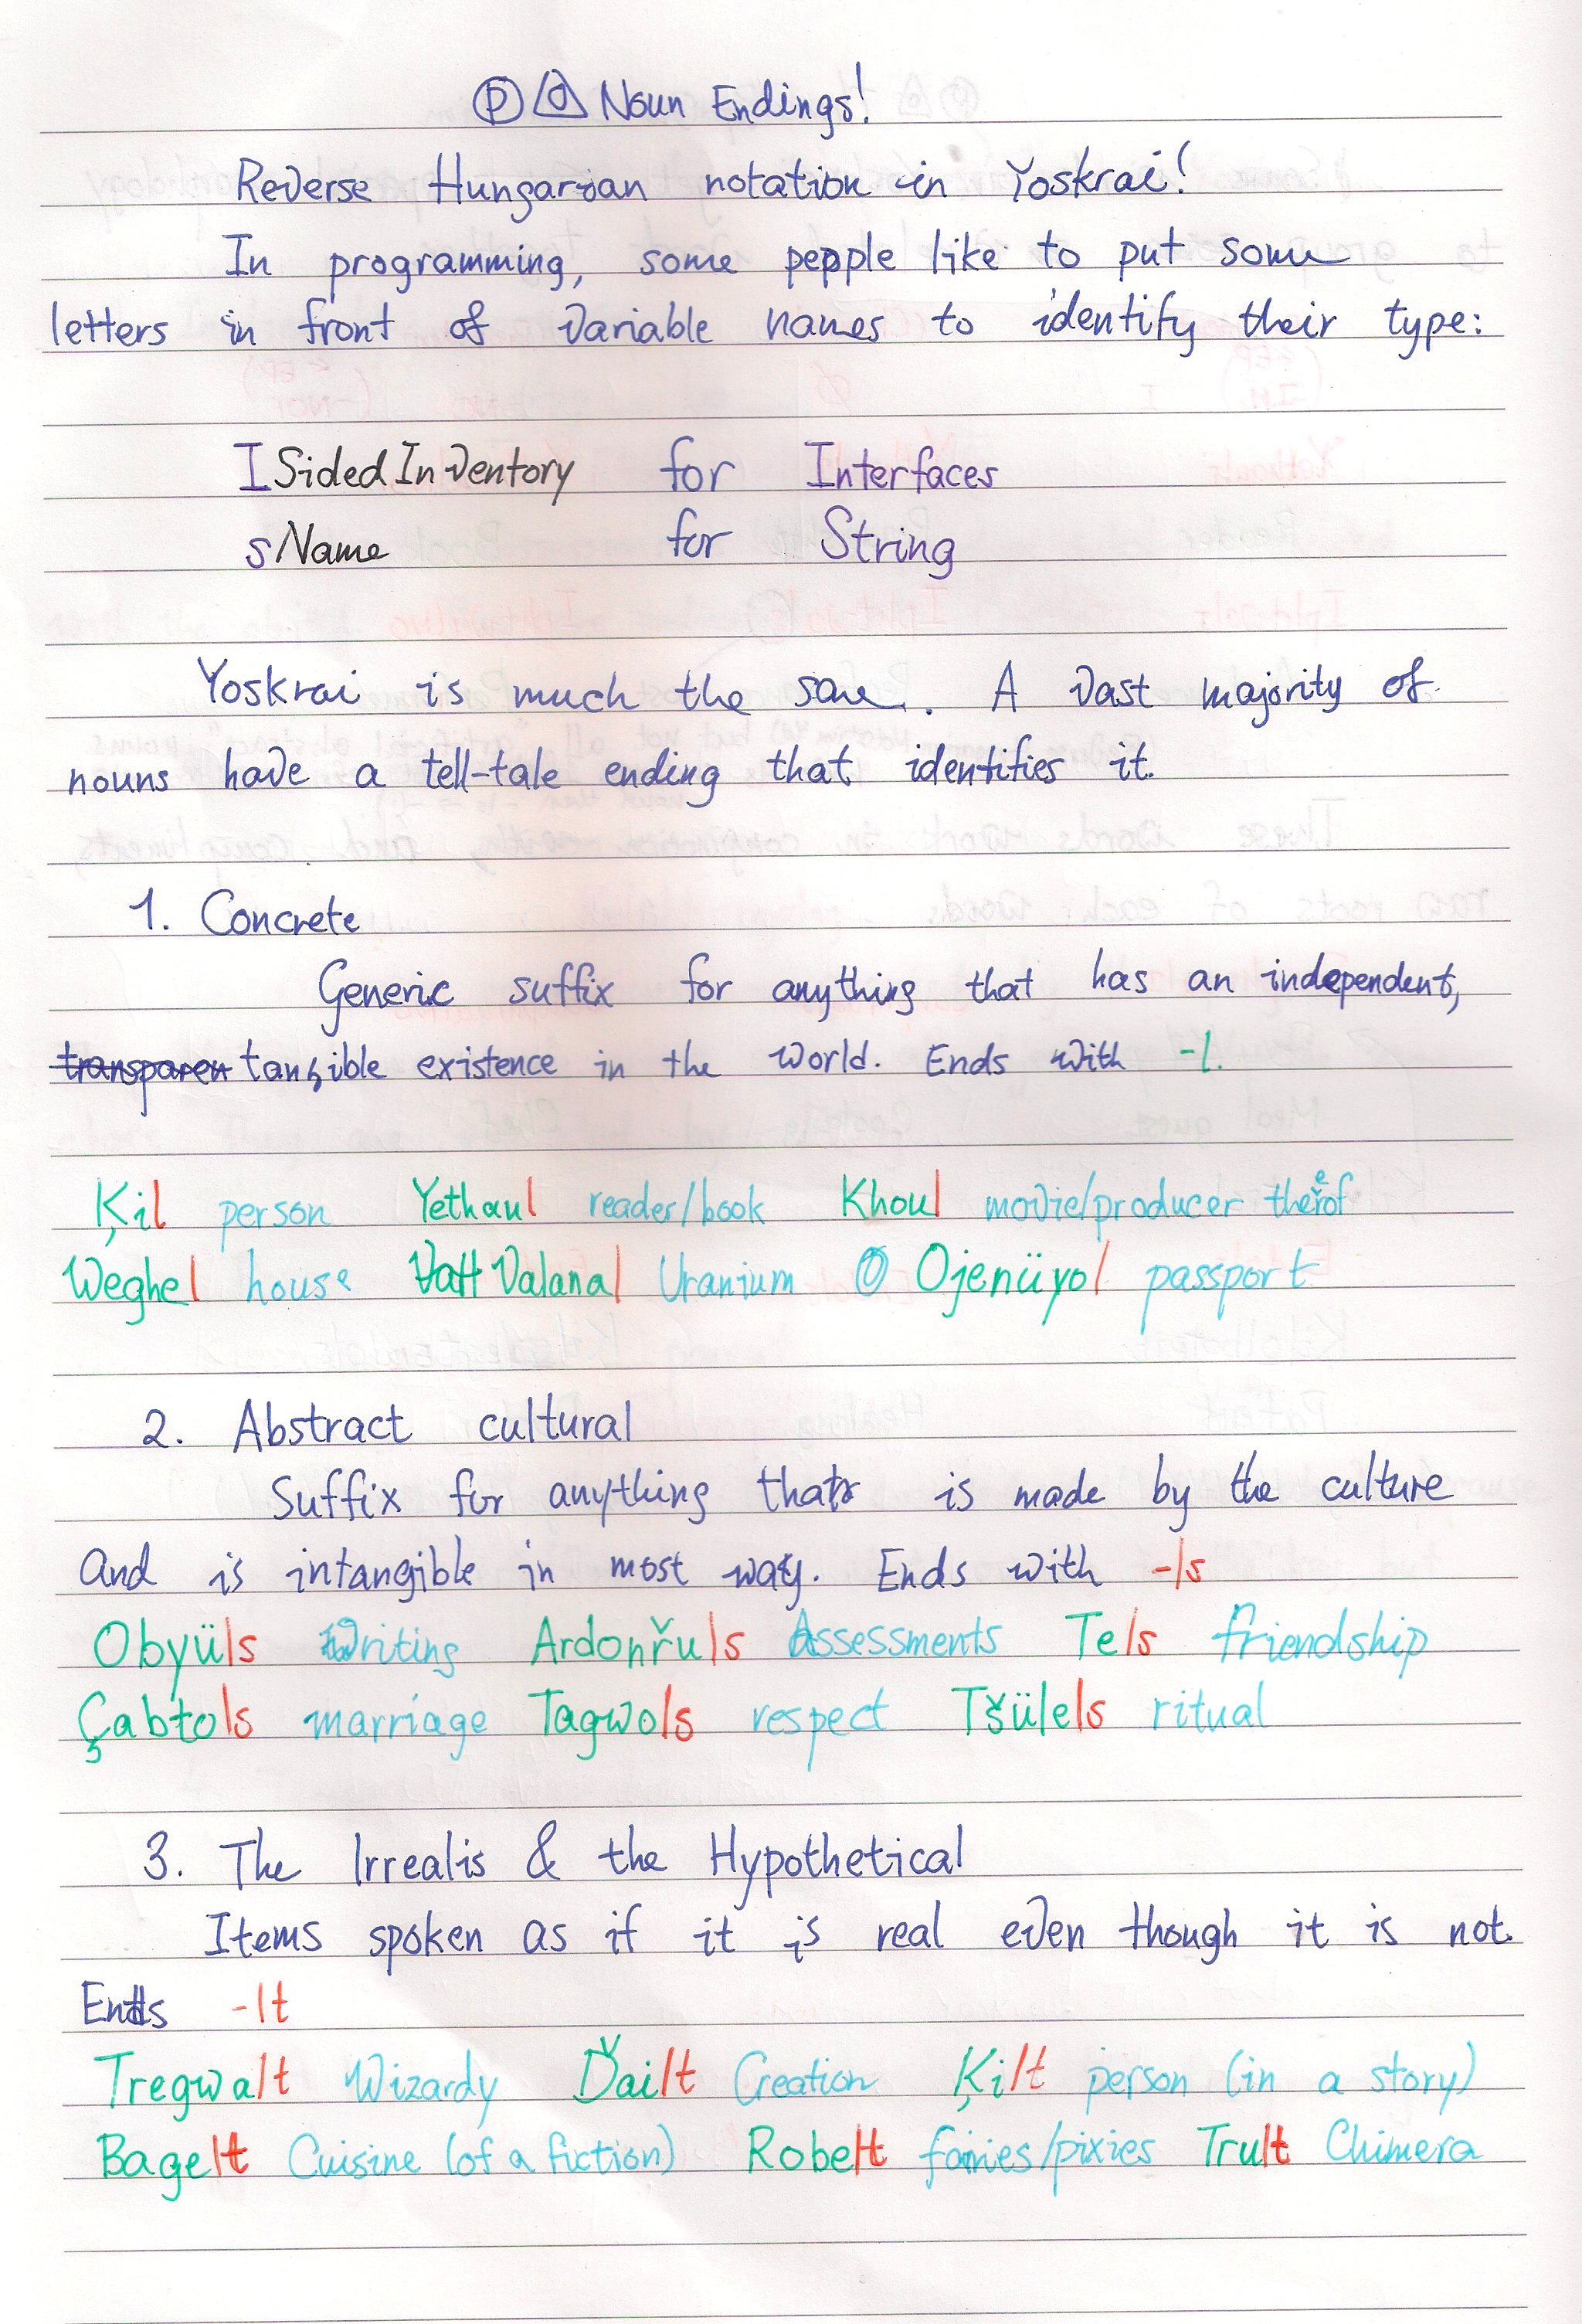 Ⓟ Noun Endings!
Reverse Hungarian notation in Yoskrai!
In programming, some pepple like to put some
letters in front of variable names to identify their type:
ISidedInventory for Interfaces
sName for String
Yoskrai is much the same. A vast majority of
nouns have a tell-tale ending that identifies it.
1. Concrete
Generic suffix for anything that has an independent,
transparen tangible existence in the world. Ends with -l.
Ķil person Yethaul reader/book Khoul movie/producer thereof
Weghel house Valanal Uranium Ojenüyol passport
2. Abstract cultural
Suffix for anything that is made by the culture
and is intangible in most way. Ends with -ls
Obyüls Writing Ardonřuls Assessments Tels friendship
Çabtols marriage Tagwols respect Tšülels ritual
3. The Irrealis & the Hypothetical
Items spoken as if it is real even though it is not.
Ends -lt
Tregwalt Wizardy Ďailt Creation Ķilt person (in a story)
Bagelt Cuisine (of a fiction) Robelt fairies/pixies Trult Chimera